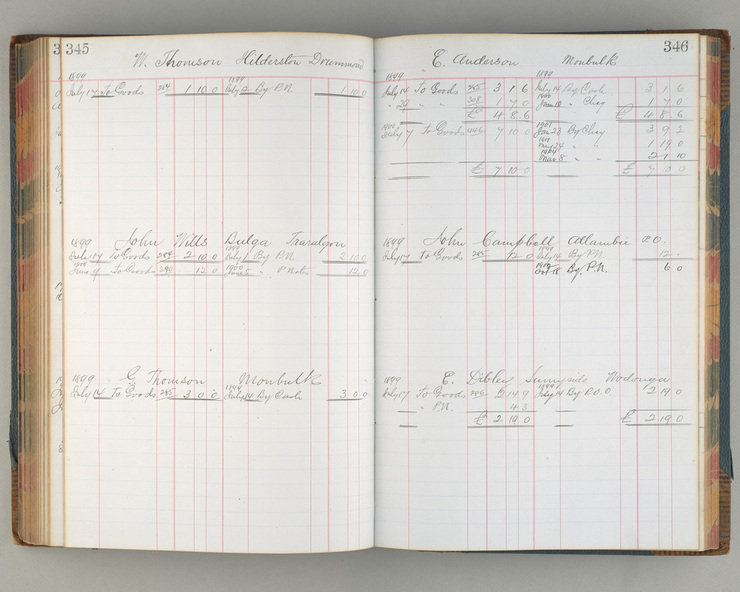 345
W. Thomson Hilderston Drummond
1899 1899
July 17 To Goods 284 1 10 0 July By P.N. 1 10 0
1899 John Wills Dulga Traralgon
July 14 To Goods 285 2 10 0 1899 July By P.N. 2 10 0
To Goods 12 0 " P Note 12 0
1899 G Thomson Monbulk
July 14 To Goods 285 3 0 0 1899 July 14 By Cash 3 0 0
346
E. Anderson Monbulk
1899 1899
July 14 To Goods 285 3 1 6 July 14 By Cash 3 1 6
" " " 308 1 7 0 " Chq 1 7 0
£ 4 8 6 £ 4 8 6
July 7 To Goods 7 10 0 23 By Chq 3 9 2
" " 1 19 0
8 " " 2 1 10
£ 7 10 0 £ 7 10 0
1899 John Campbell Allambie P.O.
July 17 To Goods 285 12 0 1899 July 14 By P.N. 12
18 By P.N. 6 0
1899 E. Dibley Sunnyside Wodonga
July 17 To Goods 286 2 14 9 1899 July 14 By P.O.O 2 19 0
" P.N. 4 3
£ 2 19 0 £ 2 19 0